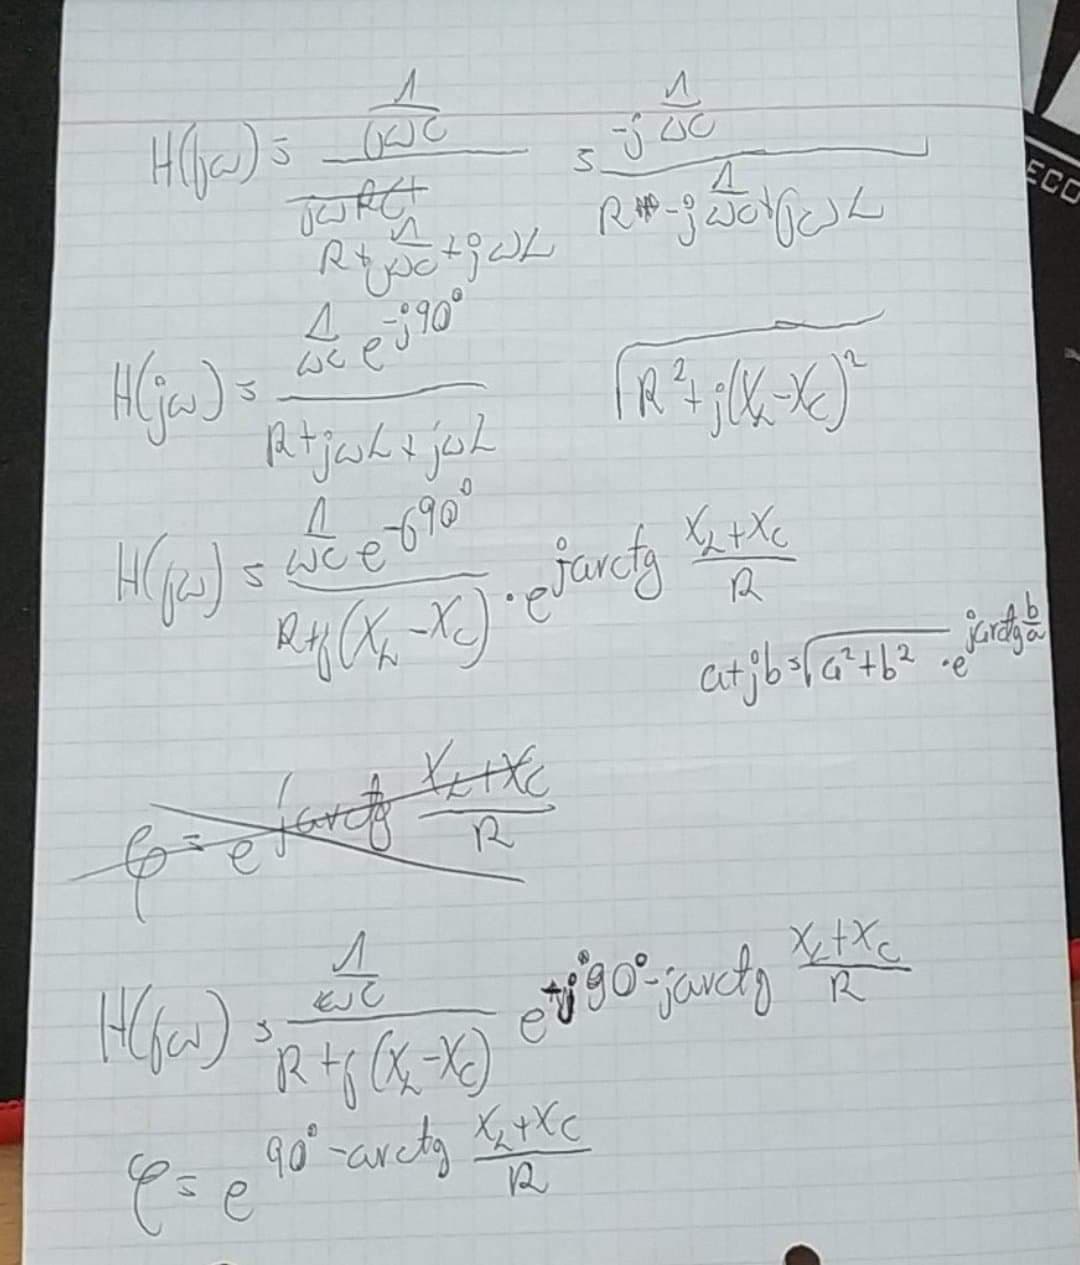 H(jω) = (1/(jωC)) / (R + 1/(jωC) + jωL) = (-j 1/(ωC)) / (R - j 1/(ωC) + jωL)
jωRC+
H(jω) = (1/(ωC) e^(-j90°)) / (R + jωL + jωL)
√(R² + j(X_L - X_C)²)
H(jω) = (1/(ωC) e^(-j90°)) / (R + j(X_L - X_C)) · e^(jarctg (X_L + X_C)/R)
a + jb = √(a² + b²) · e^(jarctg b/a)
φ = e^(jarctg (X_L + X_C)/R)
H(jω) = (1/(ωC)) / (R + j(X_L - X_C)) e^(+j90° - jarctg (X_L + X_C)/R)
φ = e^(90° - arctg (X_L + X_C)/R)
ECO